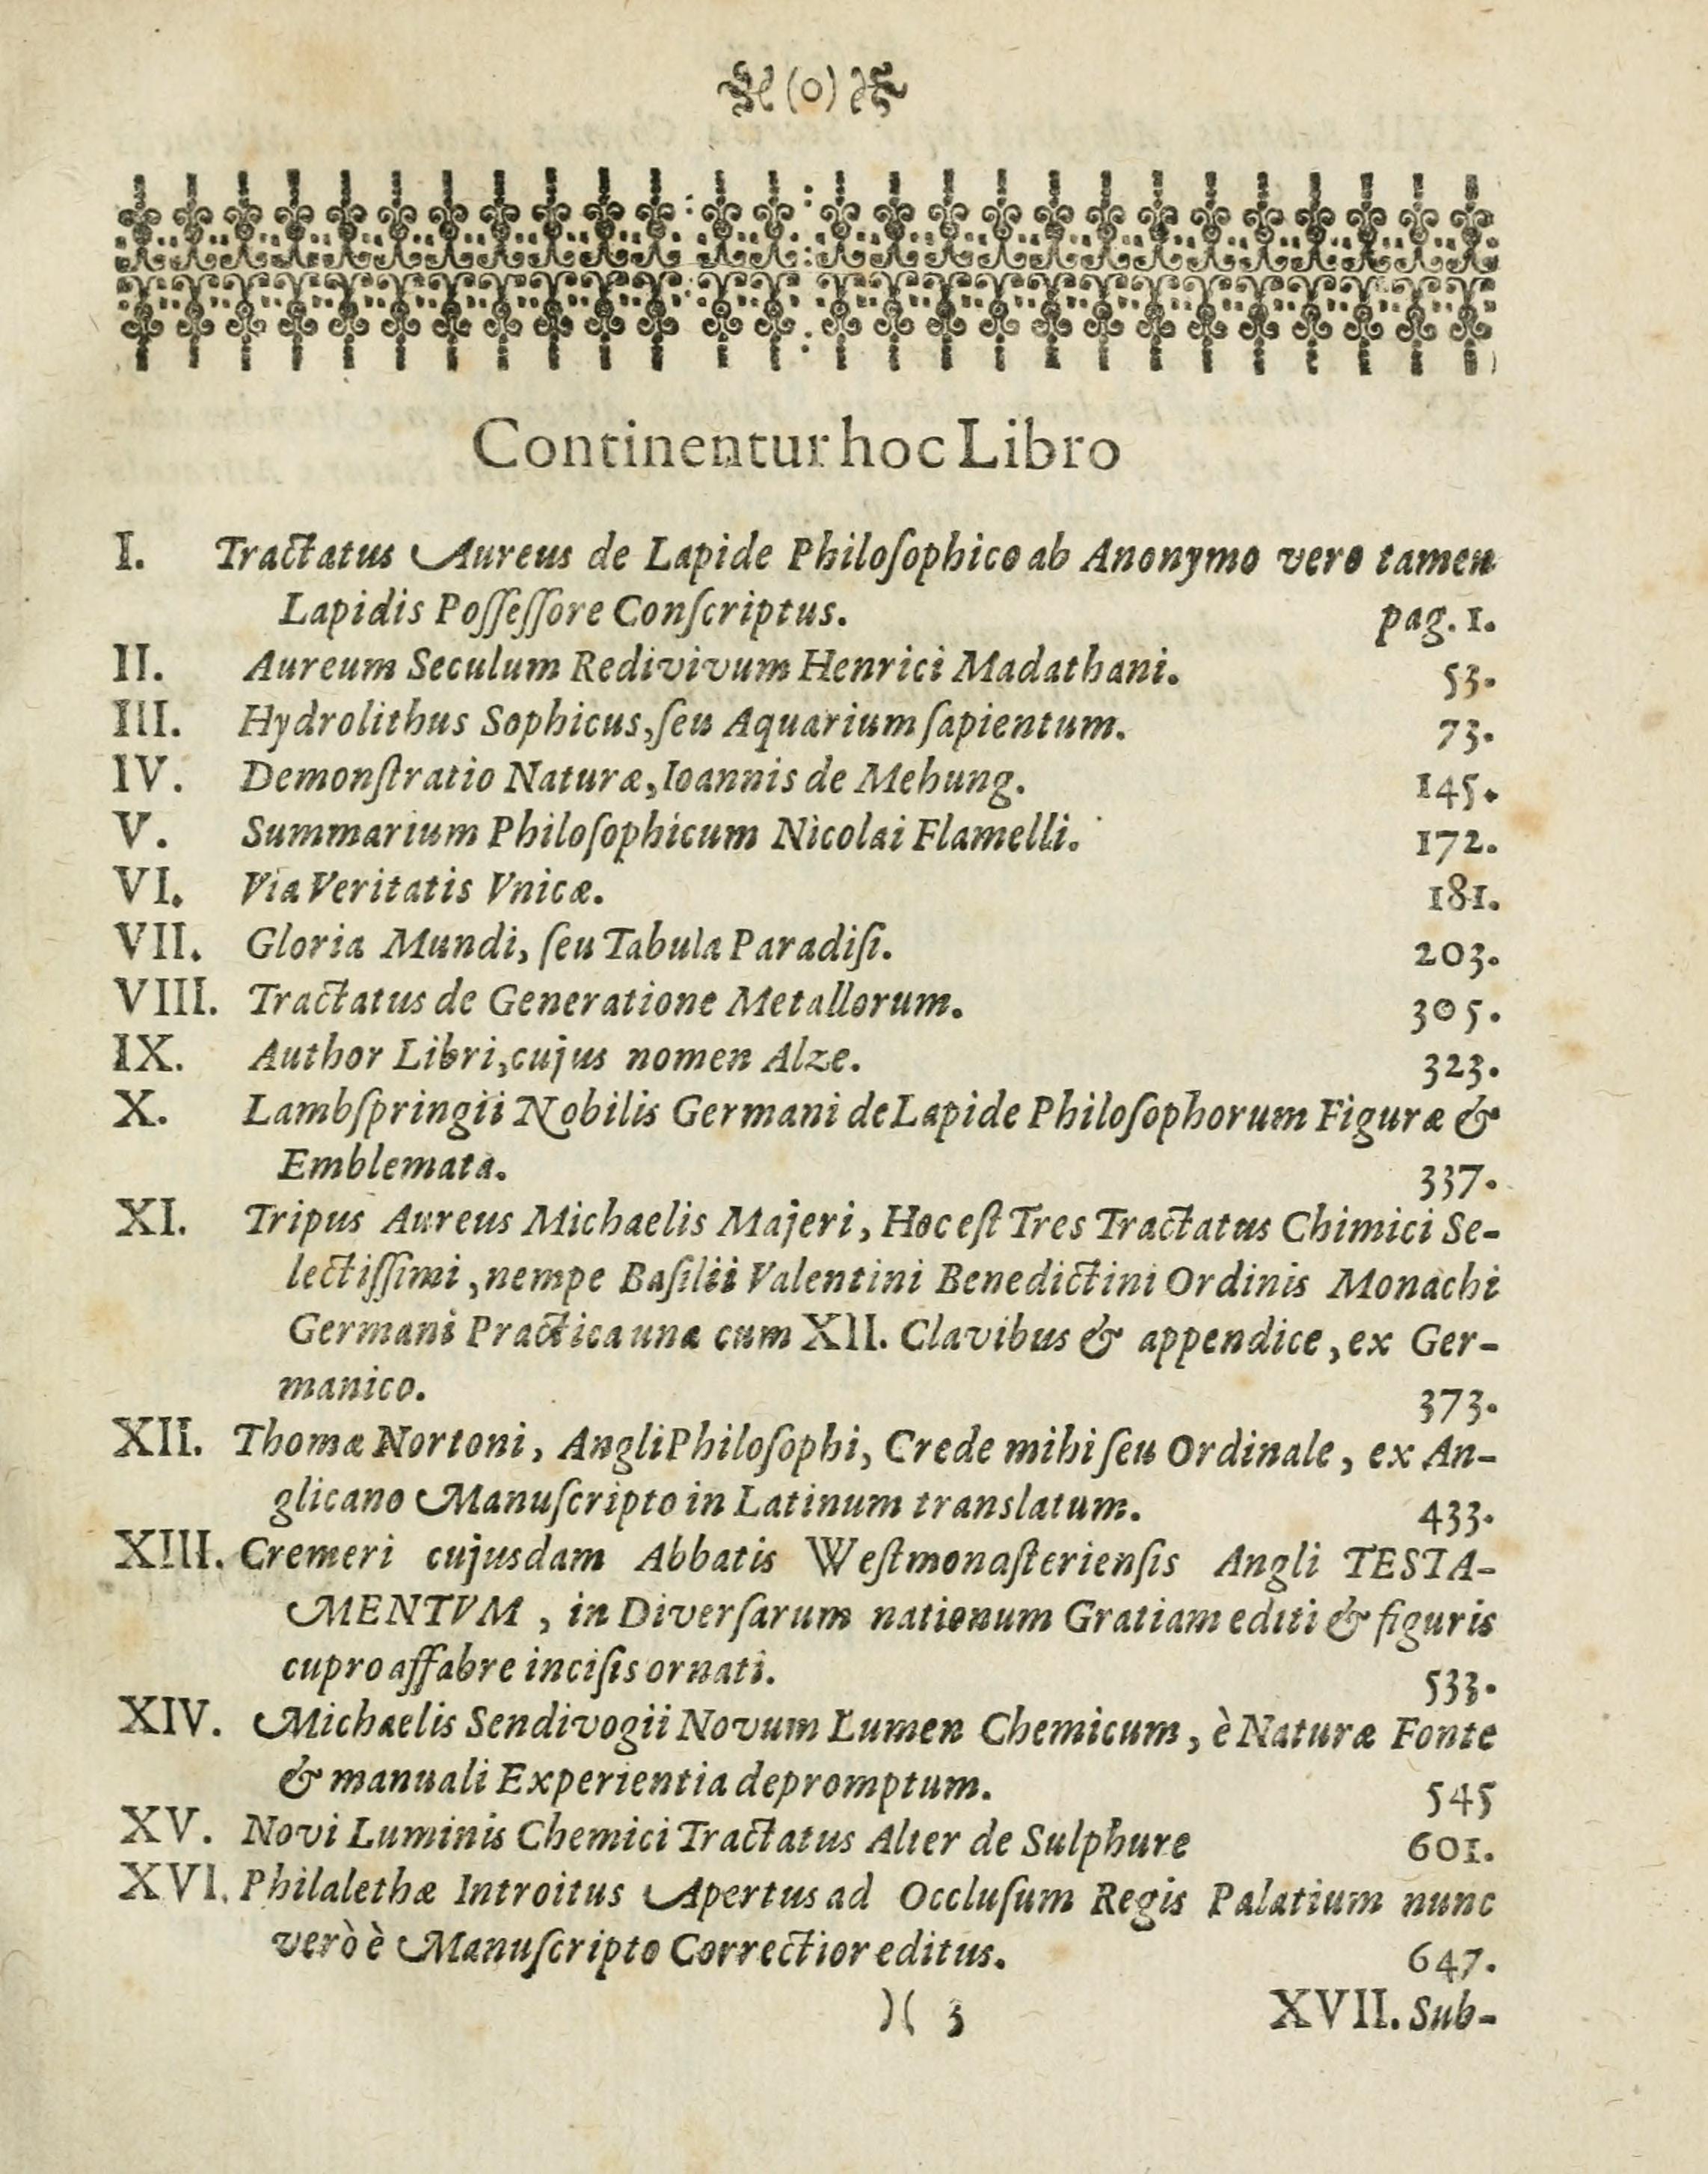 (o)
Continentur hoc Libro
I. Tractatus Aureus de Lapide Philoſophico ab Anonymo vero tamen
Lapidis Poſſeſſore Conſcriptus. pag. 1.
II. Aureum Seculum Redivivum Henrici Madathani. 53.
III. Hydrolithus Sophicus, ſeu Aquarium ſapientum. 73.
IV. Demonſtratio Naturæ, Ioannis de Mehung. 145.
V. Summarium Philoſophicum Nicolai Flamelli. 172.
VI. Via Veritatis Vnicæ. 181.
VII. Gloria Mundi, ſeu Tabula Paradiſi. 203.
VIII. Tractatus de Generatione Metallorum. 305.
IX. Author Libri, cujus nomen Alze. 323.
X. Lambſpringii Nobilis Germani de Lapide Philoſophorum Figuræ &
Emblemata. 337.
XI. Tripus Aureus Michaelis Majeri, Hoc eſt Tres Tractatus Chimici Se-
lectiſſimi, nempe Baſilii Valentini Benedictini Ordinis Monachi
Germani Practica una cum XII. Clavibus & appendice, ex Ger-
manico. 373.
XII. Thomæ Nortoni, Angli Philoſophi, Crede mihi ſeu Ordinale, ex An-
glicano Manuſcripto in Latinum translatum. 433.
XIII. Cremeri cujusdam Abbatis Weſtmonaſterienſis Angli TESTA-
MENTVM, in Diverſarum nationum Gratiam editi & figuris
cupro affabre inciſis ornati. 533.
XIV. Michaelis Sendivogii Novum Lumen Chemicum, è Naturæ Fonte
& manuali Experientia depromptum. 545
XV. Novi Luminis Chemici Tractatus Alter de Sulphure 601.
XVI. Philalethæ Introitus Apertus ad Occluſum Regis Palatium nunc
verò è Manuſcripto Correctior editus. 647.
)( 3 XVII. Sub-